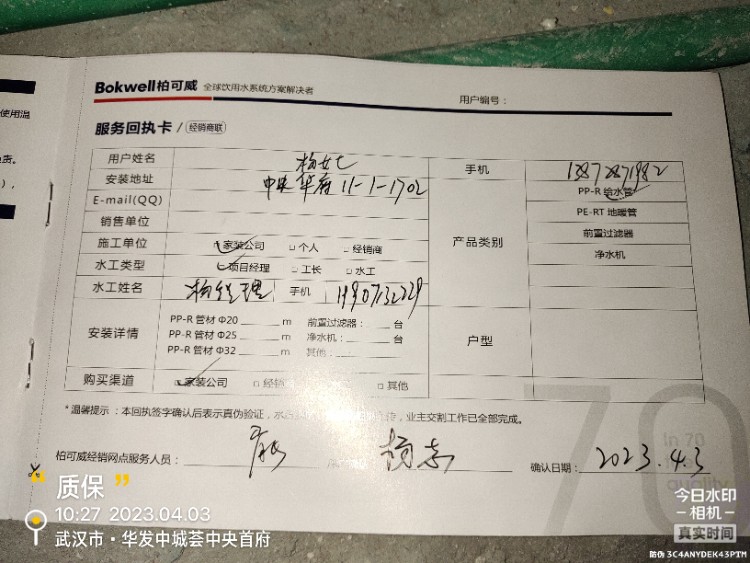 使用温
责。
),
Bokwell柏可威 全球饮用水系统方案解决者
用户编号：
服务回执卡 / 经销商联
用户姓名 杨女士 手机
安装地址 中央华府 11-1-1702 PP-R 给水管
E-mail(QQ) PE-RT 地暖管
销售单位 产品类别 前置过滤器
施工单位 家装公司 个人 经销商 净水机
水工类型 项目经理 工长 水工
水工姓名 杨经理 手机
安装详情 PP-R 管材 Φ20 m 前置过滤器： 台 户型
PP-R 管材 Φ25 m 净水机： 台
PP-R 管材 Φ32 m 其他：
购买渠道 家装公司 经销 其他
*温馨提示：本回执签字确认后表示真伪验证，水 ，业主交割工作已全部完成。
柏可威经销网点服务人员： 确认日期： 2023.4.3
70
in 70
quality
质保
10:27 2023.04.03
武汉市·华发中城荟中央首府
今日水印
-相机-
真实时间
防伪 3C4ANYDEK43PTM